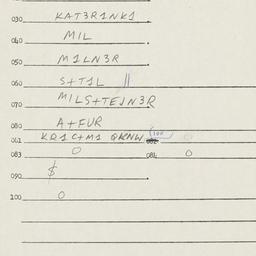 030 KAT3R1NK1
040 MIL
050 M1LN3R
060 S+T1L
070 MILS+TEJN3R
080 A+FUR
081 KR1C+M1 100
083 0 084 0
090 $
100 0